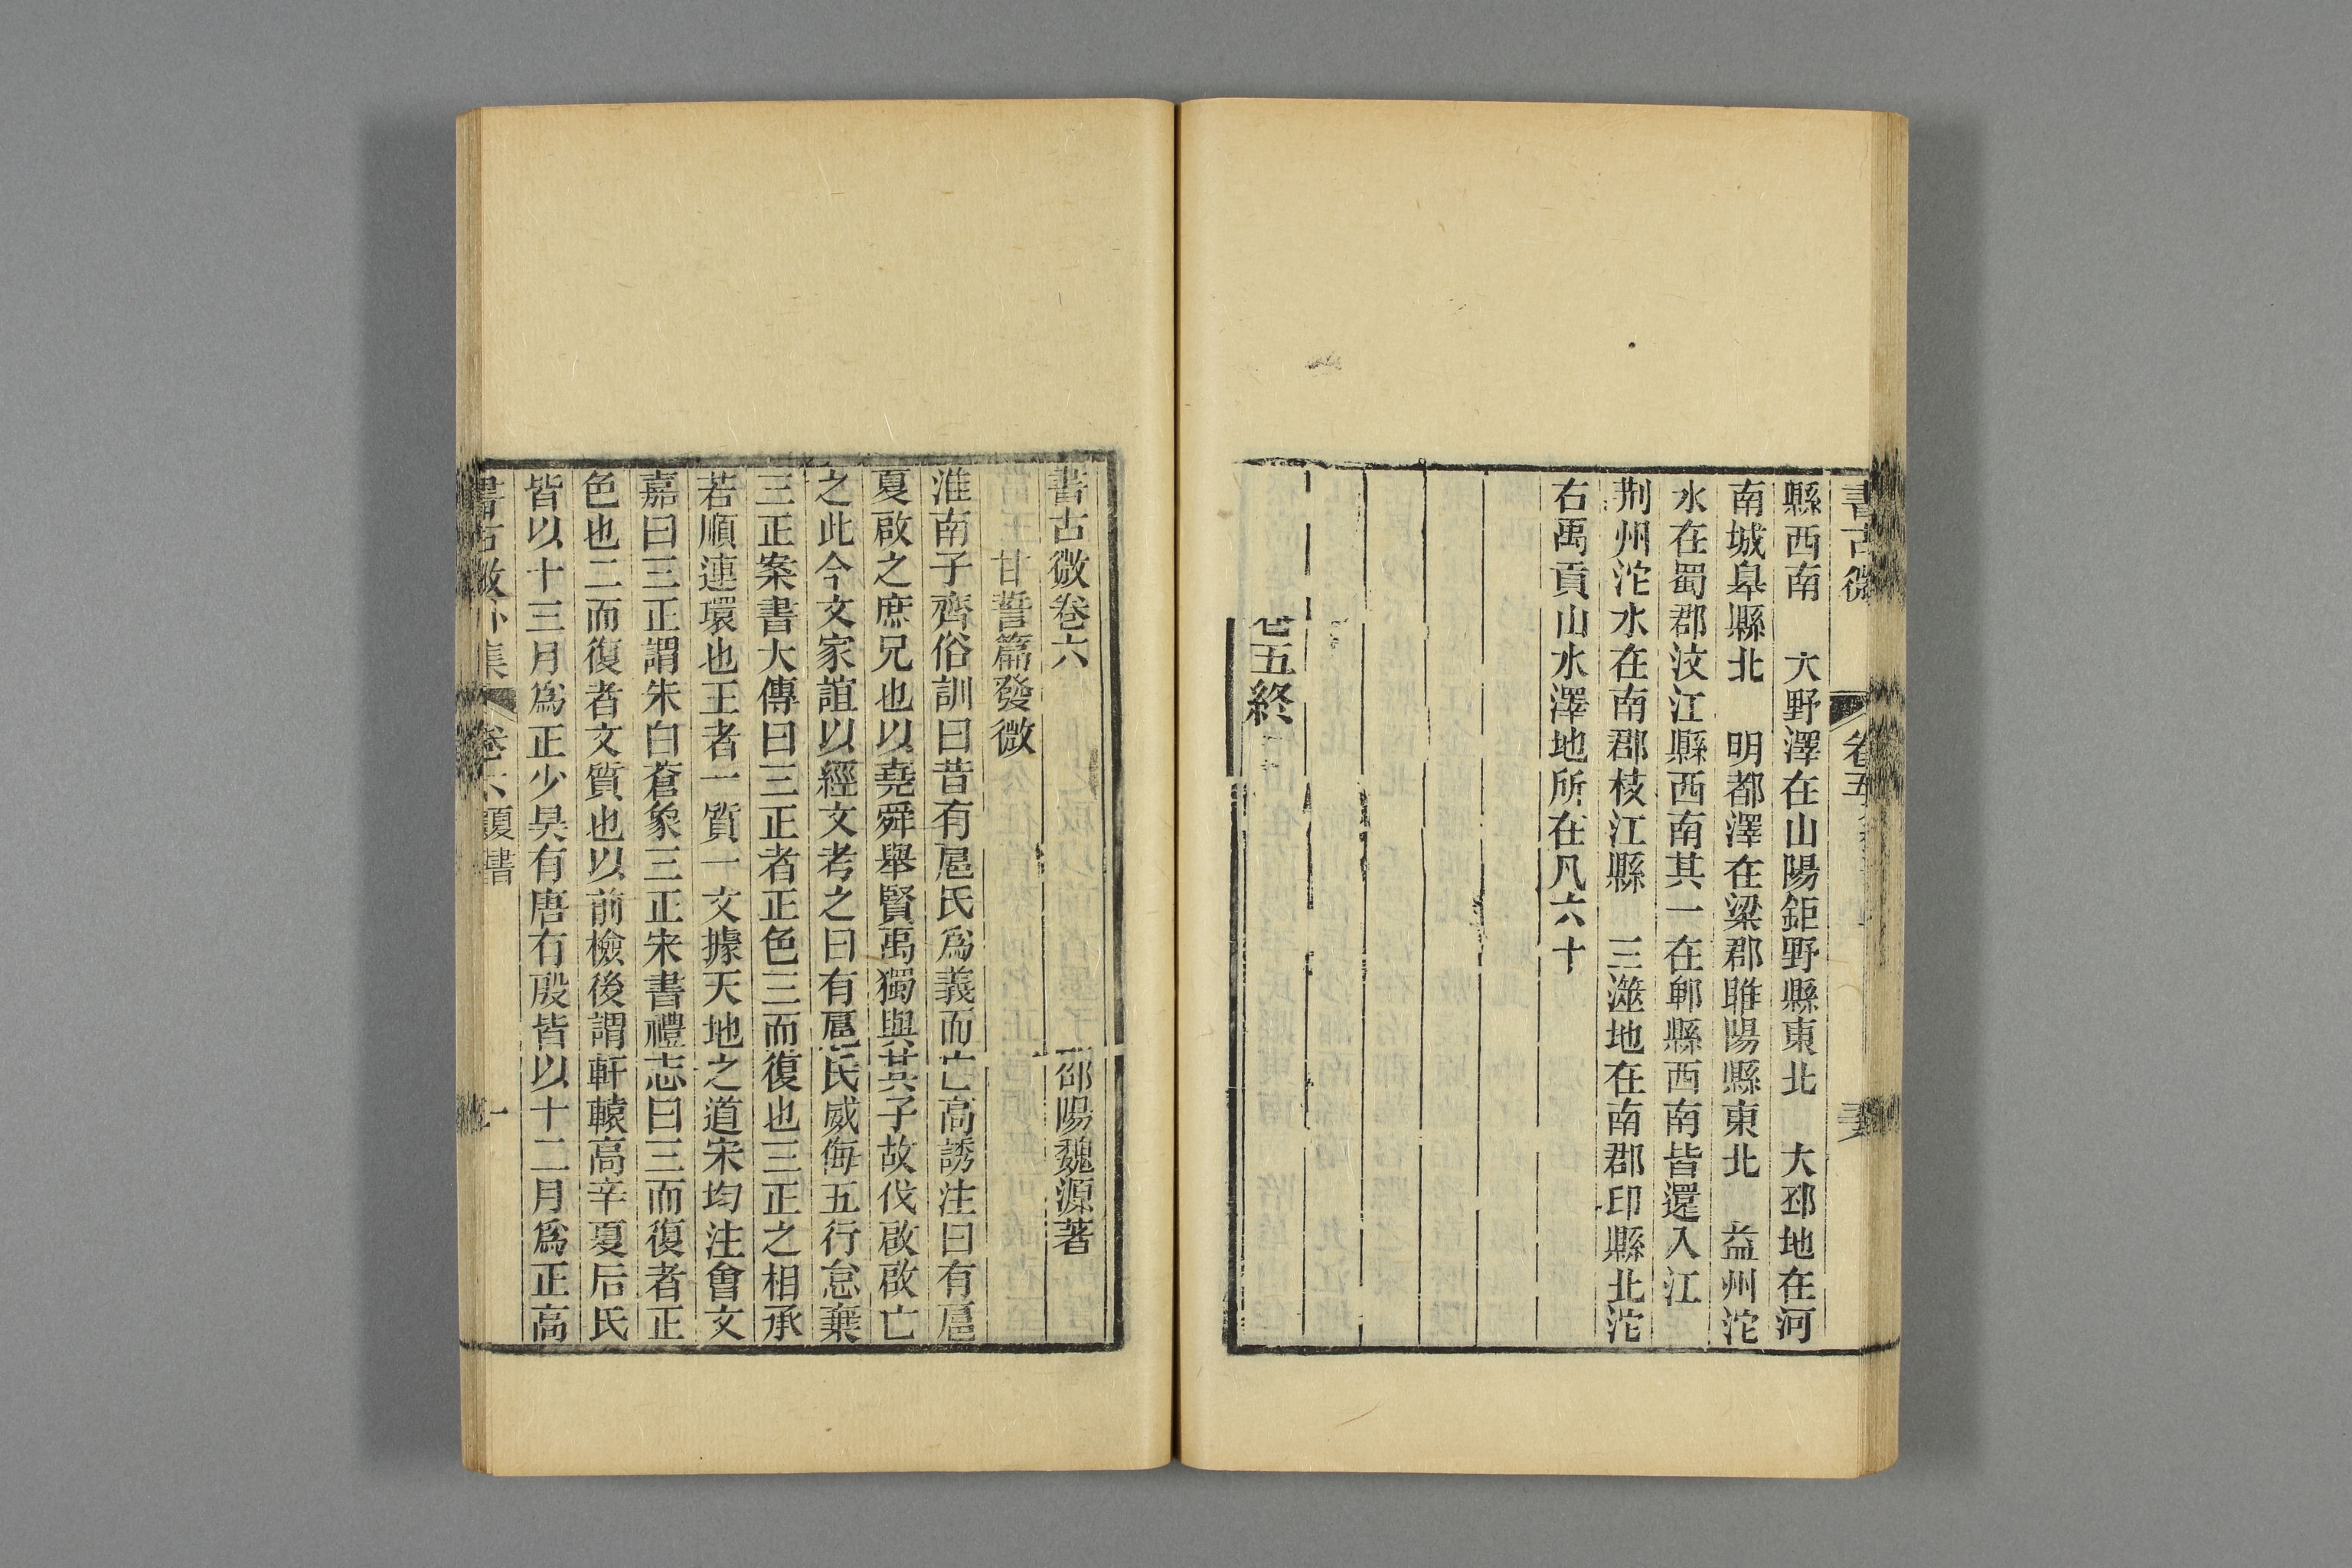 書古微
卷五
縣西南　大野澤在山陽鉅野縣東北　大邳地在河
南城皋縣北　明都澤在梁郡睢陽縣東北　益州沱
水在蜀郡汶江縣西南其一在郫縣西南皆還入江
荆州沱水在南郡枝江縣　三澨地在南郡邔縣北沱
右禹貢山水澤地所在凡六十
卷五終
書古微卷六
邵陽魏源著
甘誓篇發微
淮南子齊俗訓曰昔有扈氏爲義而亡高誘注曰有扈
夏啟之庶兄也以堯舜舉賢禹獨與其子故伐啟啟亡
之此今文家誼以經文考之曰有扈氏威侮五行怠棄
三正案書大傳曰三正者正色三而復也三正之相承
若順連環也王者一質一文據天地之道宋均注會文
嘉曰三正謂朱白蒼象三正宋書禮志曰三而復者正
色也二而復者文質也以前檢後謂軒轅高辛夏后氏
皆以十三月爲正少昊有唐有殷皆以十二月爲正高
書古微
集
卷六夏書
一